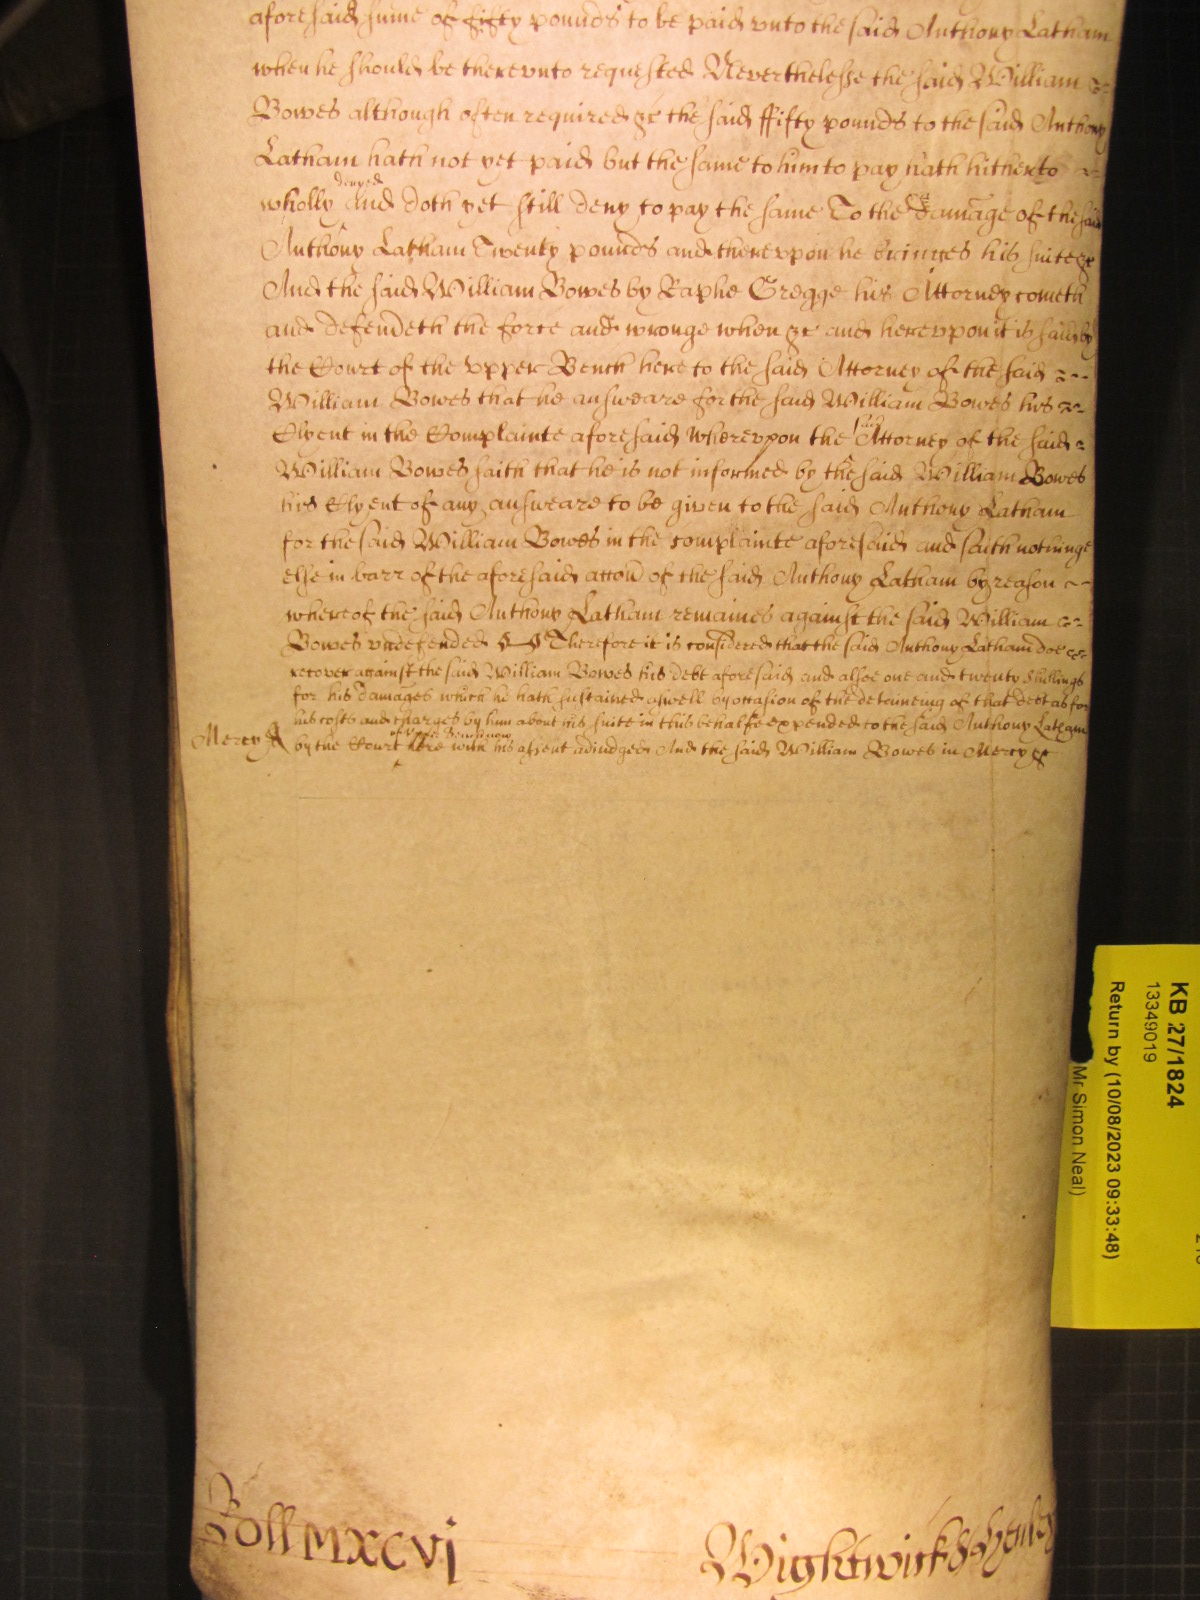 aforesaid sume of fifty pounds to be paid vnto the said Anthony Latham
when he should be therevnto requested Neverthelesse the said William
Bowes although often required &c the said ffifty pounds to the said Anthony
Latham hath not yet paid but the same to him to pay hath hitherto
wholly denyed and doth yet still deny to pay the same To the damage of the said
Anthony Latham Twenty pounds and therevpon he bringes his suite &c
And the said William Bowes by Raphe Gregge his Attorney cometh
and defendeth the force and wronge when &c and herevpon it is said by
the Court of the vpper Bench here to the said Attorney of the said
William Bowes that he answeare for the said William Bowes his
Clyent in the Complainte aforesaid Wherevpon the said Attorney of the said
William Bowes saith that he is not informed by the said William Bowes
his Clyent of any answeare to be given to the said Anthony Latham
for the said William Bowes in the complainte aforesaid and saith nothinge
else in barr of the aforesaid accon of the said Anthony Latham by reason
whereof the said Anthony Latham remaines against the said William
Bowes vndefended Therefore it is considered that the said Anthony Latham doe
recover against the said William Bowes his debt aforesaid and alsoe one and twenty shillings
for his damages which he hath sustained aswell by occasion of the deteineing of that debt as for
his costs and charges by him about his suite in this behalfe expended to the said Anthony Latham
Mercy &c by the Court of Vpper Bench now here with his assent adiudged And the said William Bowes in Mercy &c
Roll MXCVI
Wightwick & Henley
KB 27/1824
13349019
Return by (10/08/2023 09:33:48)
Mr Simon Neal)